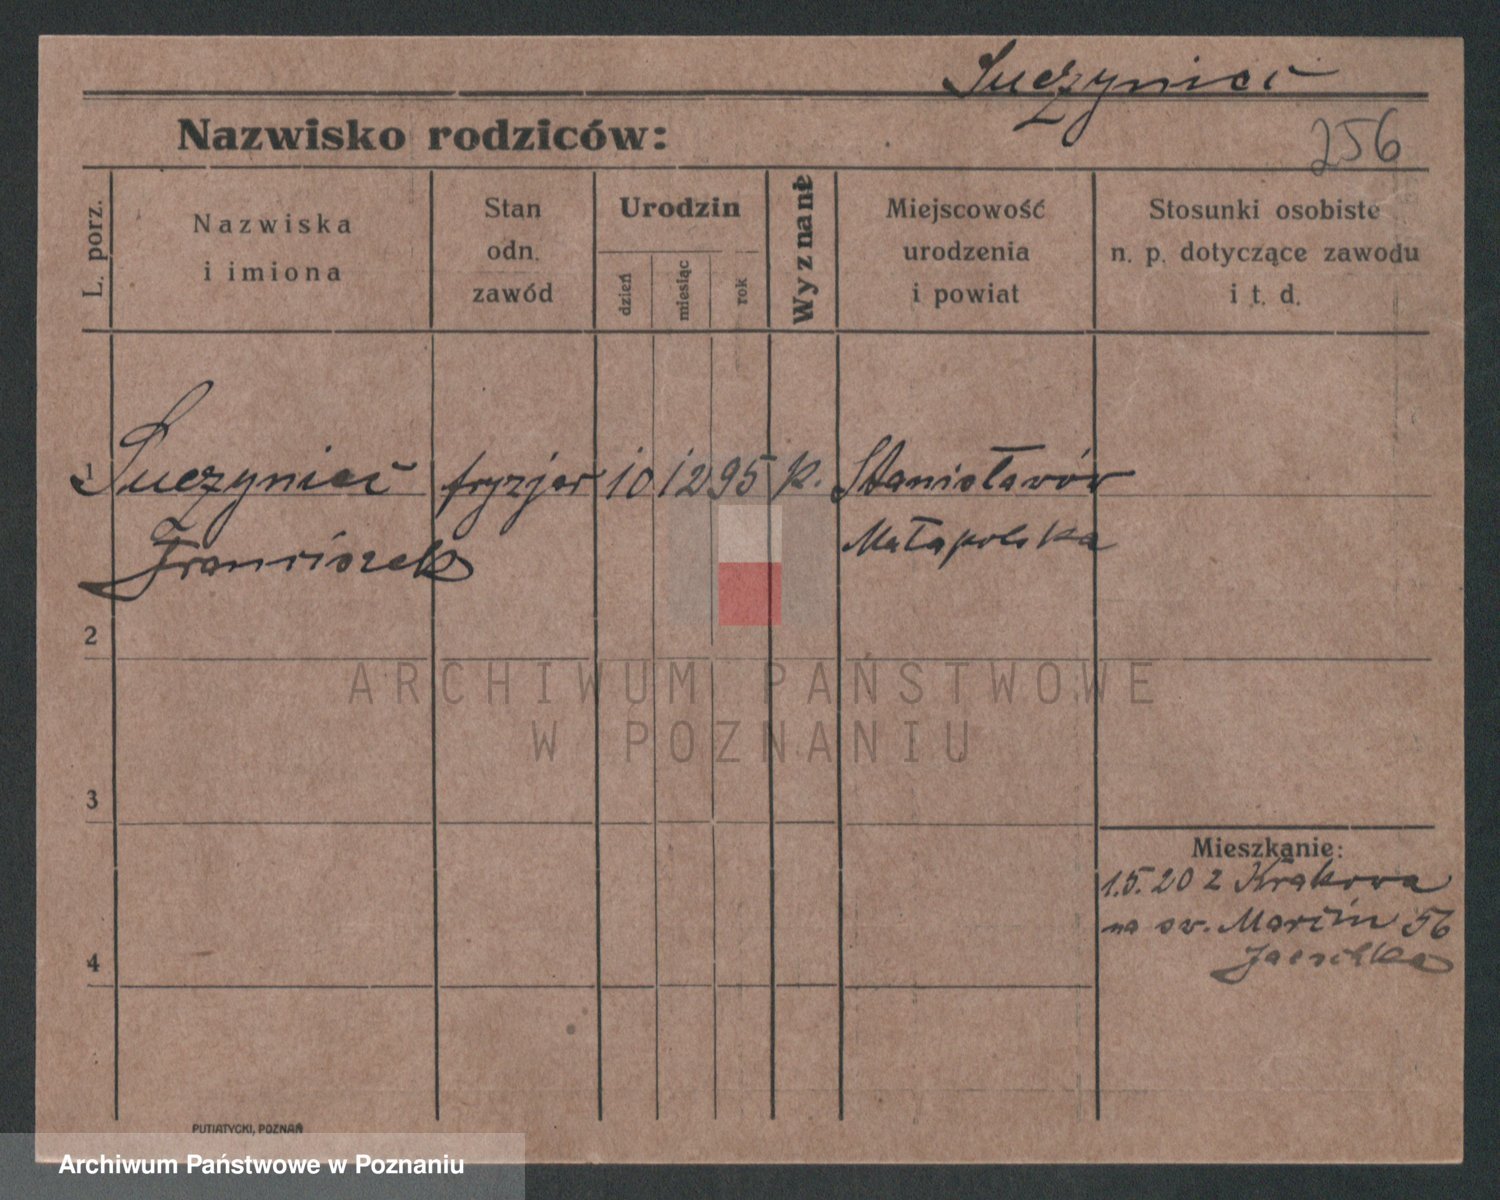 Suczynieć
Nazwisko rodziców:
256
L. porz.
Nazwiska
i imiona
Stan
odn.
zawód
Urodzin
dzień
miesiąc
rok
Wyznanie
Miejscowość
urodzenia
i powiat
Stosunki osobiste
n. p. dotyczące zawodu
i t. d.
1
Suczynieć fryzjer 10 12 95 k. Stanisławów
Franciszek Małopolska
2
3
Mieszkanie:
1.5.20 z Krakowa
na św. Marcin 56
4
PUTIATYCKI, POZNAŃ
ARCHIWUM PAŃSTWOWE
W POZNANIU
Archiwum Państwowe w Poznaniu